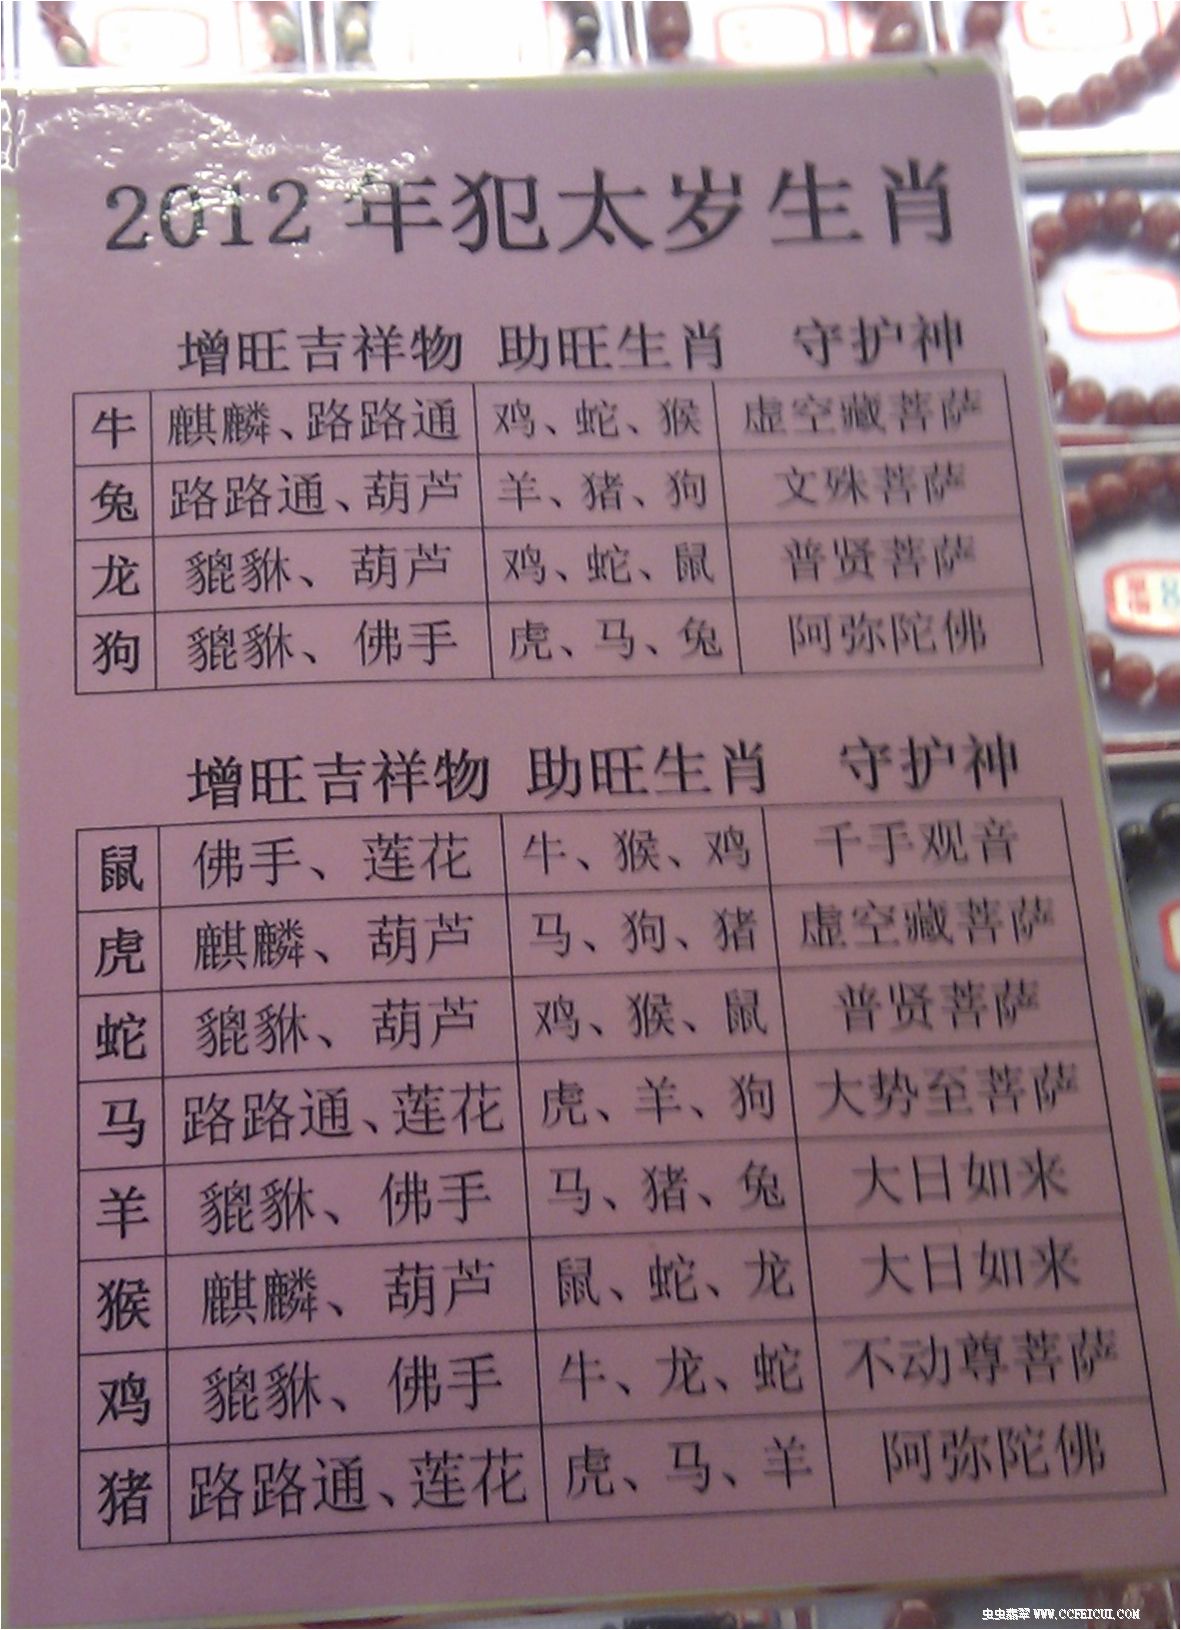 2012年犯太岁生肖
增旺吉祥物 助旺生肖 守护神
牛 麒麟、路路通 鸡、蛇、猴 虚空藏菩萨
兔 路路通、葫芦 羊、猪、狗 文殊菩萨
龙 貔貅、葫芦 鸡、蛇、鼠 普贤菩萨
狗 貔貅、佛手 虎、马、兔 阿弥陀佛
增旺吉祥物 助旺生肖 守护神
鼠 佛手、莲花 牛、猴、鸡 千手观音
虎 麒麟、葫芦 马、狗、猪 虚空藏菩萨
蛇 貔貅、葫芦 鸡、猴、鼠 普贤菩萨
马 路路通、莲花 虎、羊、狗 大势至菩萨
羊 貔貅、佛手 马、猪、兔 大日如来
猴 麒麟、葫芦 鼠、蛇、龙 大日如来
鸡 貔貅、佛手 牛、龙、蛇 不动尊菩萨
猪 路路通、莲花 虎、马、羊 阿弥陀佛
虫虫翡翠 WWW.CCFEICUI.COM